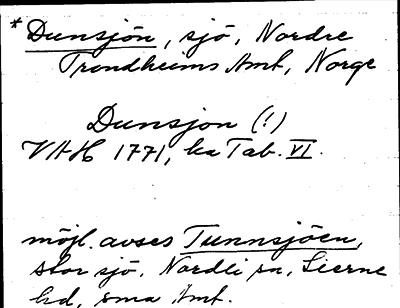 *Dunsjön, sjö, Nordre
Trondheims Amt, Norge
Dunsjon (!)
VAH 1771, ka Tab. VI.
möjl. avses Tunnsjöen,
stor sjö, Nordli sn, Lierne
hd, sma Amt.